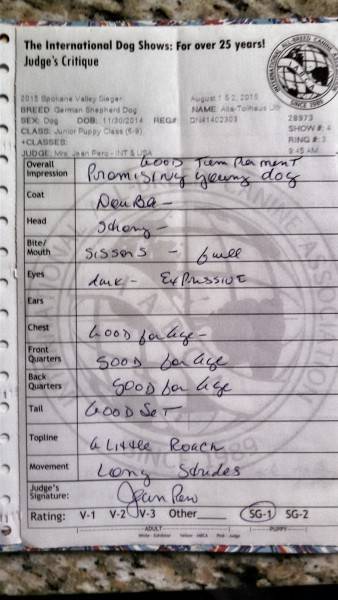 The International Dog Shows: For over 25 years!
Judge's Critique
2015 Spokane Valley Sieger August 1 & 2, 2015
BREED: German Shepherd Dog NAME: Alta-Tollhaus
SEX: Dog DOB: 11/30/2014 REG# DN41402303 28973
CLASS: Junior Puppy Class (6-9) SHOW #: 4
+CLASSES: RING #: 3
JUDGE: Mrs. Jean Pero - INT & USA 9:45 AM
Overall Impression GOOD Temprament
Promising young dog
Coat Double -
Head Strong -
Bite/Mouth Sissors - full
Eyes dark - Expressive
Ears
Chest Good for Age -
Front Quarters Good for Age
Back Quarters Good for Age
Tail Good Set
Topline a Little Roach
Movement Long Strides
Judge's Signature: Jean Pero
Rating: V-1 V-2 V-3 Other SG-1 SG-2
ADULT PUPPY
White - Exhibitor Yellow - IABCA Pink - Judge
SINCE 1989